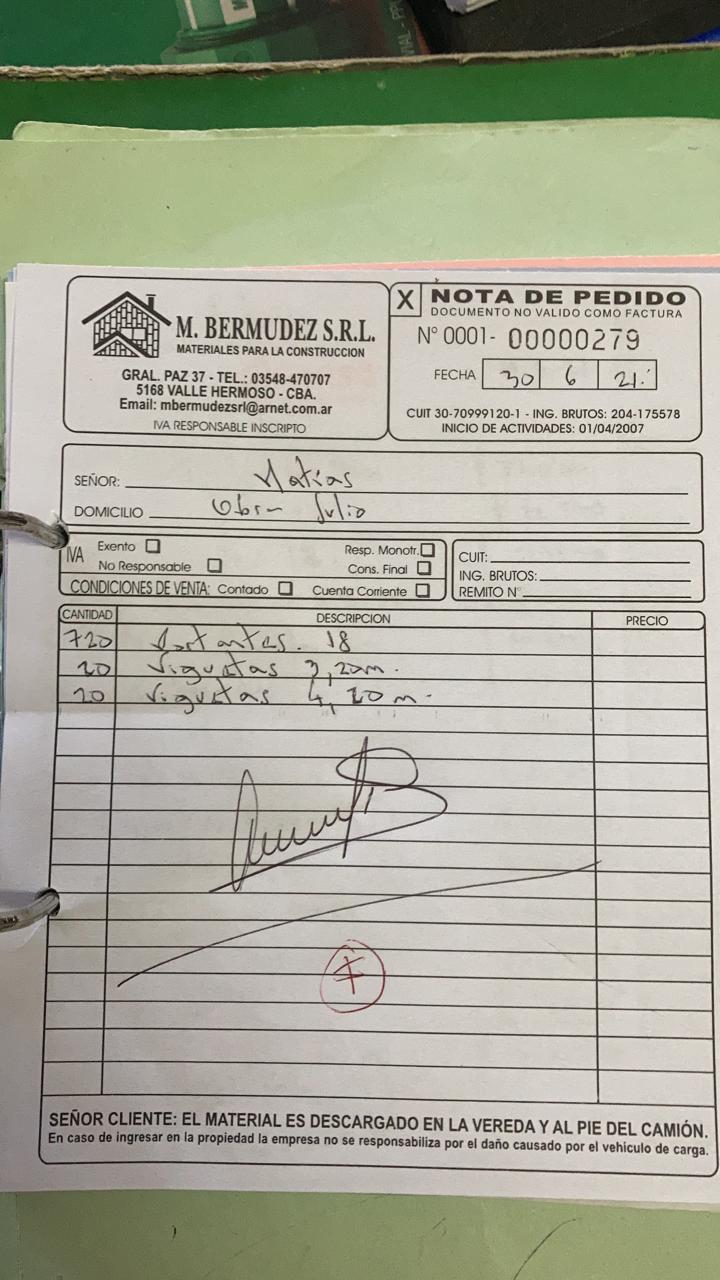 M. BERMUDEZ S.R.L.
MATERIALES PARA LA CONSTRUCCION
GRAL. PAZ 37 - TEL.: 03548-470707
5168 VALLE HERMOSO - CBA.
Email: mbermudezsrl@arnet.com.ar
IVA RESPONSABLE INSCRIPTO
X NOTA DE PEDIDO
DOCUMENTO NO VALIDO COMO FACTURA
N° 0001- 00000279
FECHA 30 6 21
CUIT 30-70999120-1 - ING. BRUTOS: 204-175578
INICIO DE ACTIVIDADES: 01/04/2007
SEÑOR: Matias
DOMICILIO Obra Julio
IVA Exento
No Responsable
Resp. Monotr.
Cons. Final
CONDICIONES DE VENTA: Contado Cuenta Corriente
CUIT:
ING. BRUTOS:
REMITO N°
CANTIDAD DESCRIPCION PRECIO
720 18
20 Viguetas 3,20m.
20 Viguetas 4,20m.
SEÑOR CLIENTE: EL MATERIAL ES DESCARGADO EN LA VEREDA Y AL PIE DEL CAMIÓN.
En caso de ingresar en la propiedad la empresa no se responsabiliza por el daño causado por el vehiculo de carga.